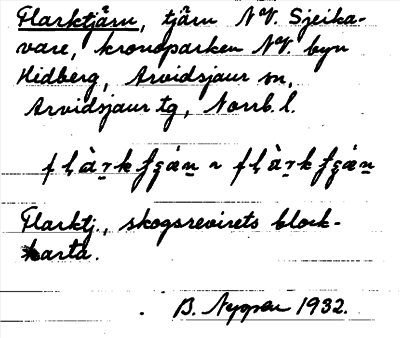 Flarktjärn, tjärn NV. Sjeika-
vare, kronoparken NV. byn
Hidberg, Arvidsjaur sn,
Arvidsjaur tg, Norrb. l.
Flarktj., skogsrevirets block-
karta.
B. Nygren 1932.